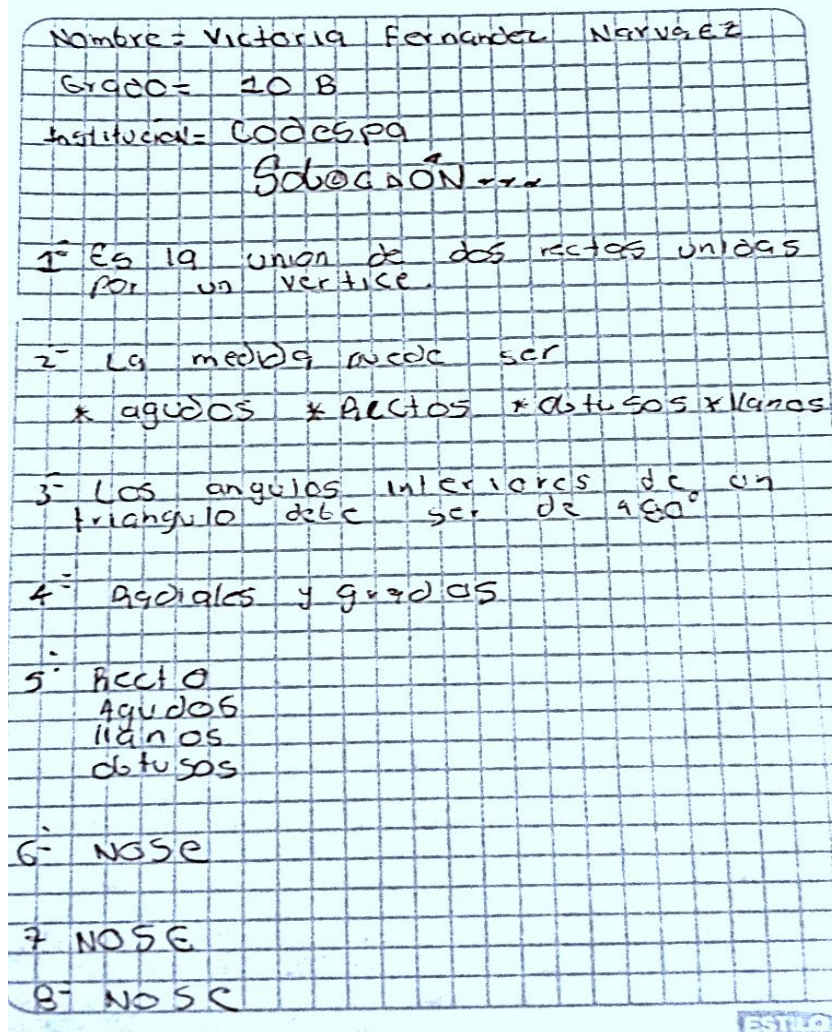 Nombre = Victoria Fernandez Narvaez
Grado = 10 B
Institución = Codespa
Solución ---
1- Es la union de dos rectas unidas
por un vertice.
2- La medida puede ser
* agudos * Rectos * obtusos * llanos
3- Los angulos interiores de un
triangulo debe ser de 180°
4- Radiales y grados
5- Recto
Agudos
llanos
obtusos
6- NOSe
7 NOSE
8- NOSE
ESTILO